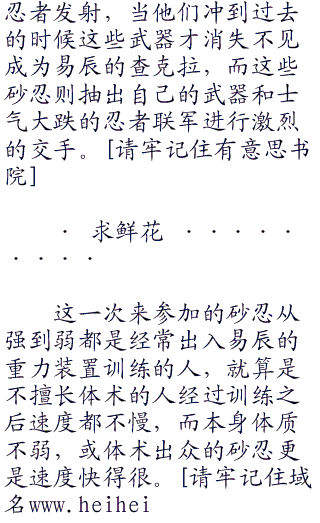 忍者发射，当他们冲到过去
的时候这些武器才消失不见
成为易辰的查克拉，而这些
砂忍则抽出自己的武器和士
气大跌的忍者联军进行激烈
的交手。[请牢记住有意思书
院]
· 求鲜花 · · · · ·
· · · ·
这一次来参加的砂忍从
强到弱都是经常出入易辰的
重力装置训练的人，就算是
不擅长体术的人经过训练之
后速度都不慢，而本身体质
不弱，或体术出众的砂忍更
是速度快得很。[请牢记住域
名www.heihei